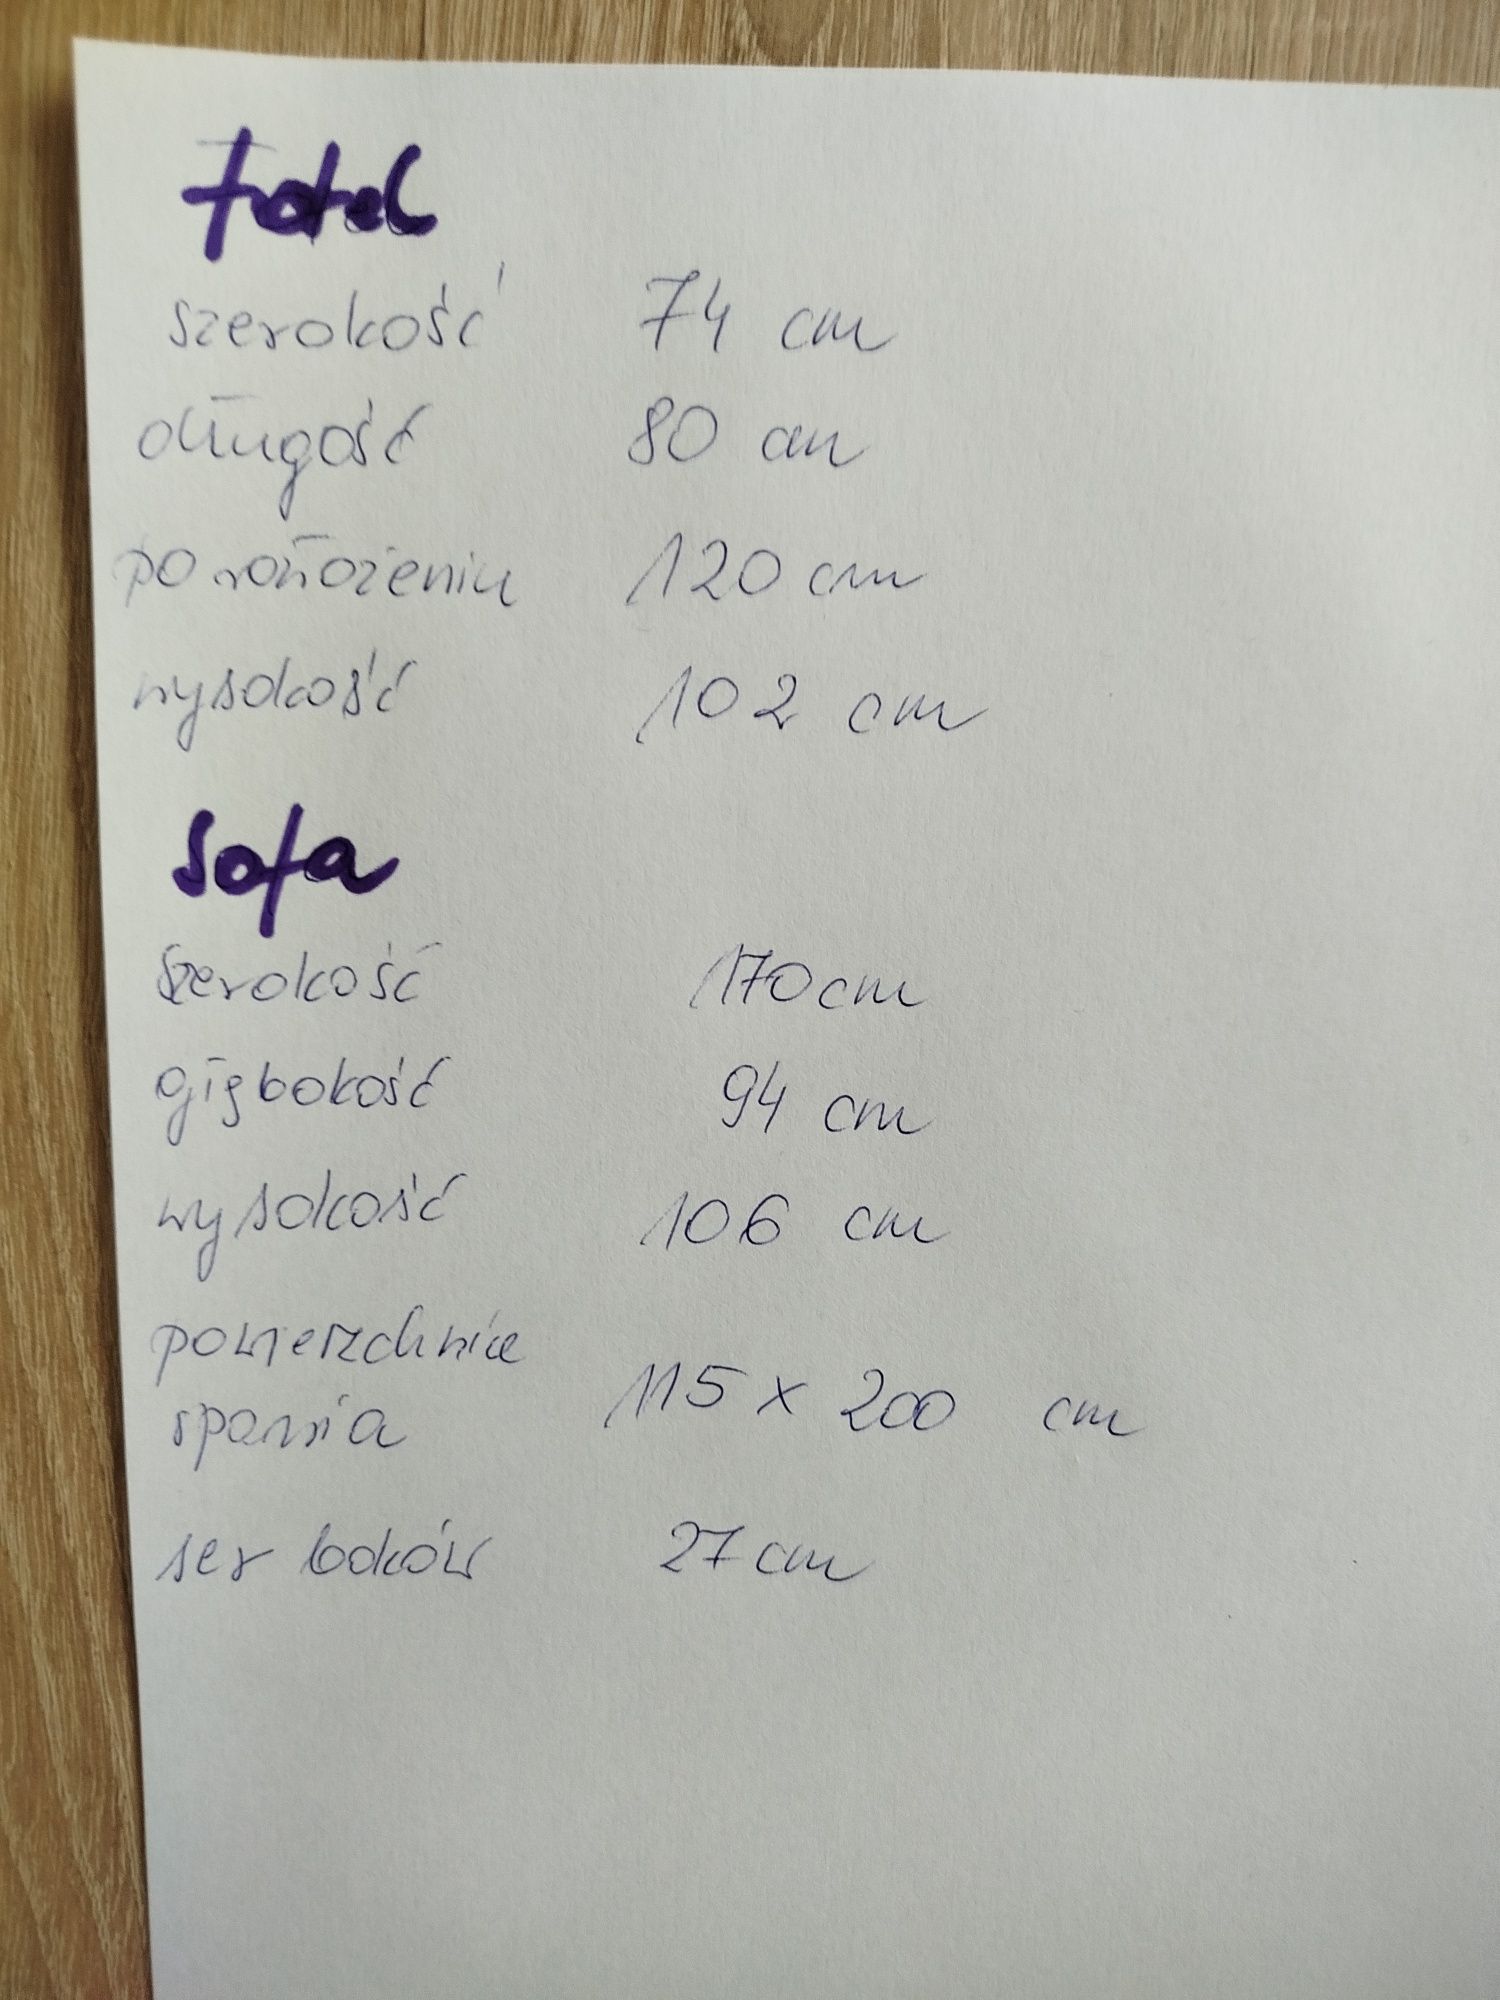 fotel
szerokość 74 cm
długość 80 cm
po rozłożeniu 120 cm
wysokość 102 cm
sofa
szerokość 170 cm
głębokość 94 cm
wysokość 106 cm
powierzchnia
spania 115 x 200 cm
szer boków 27 cm